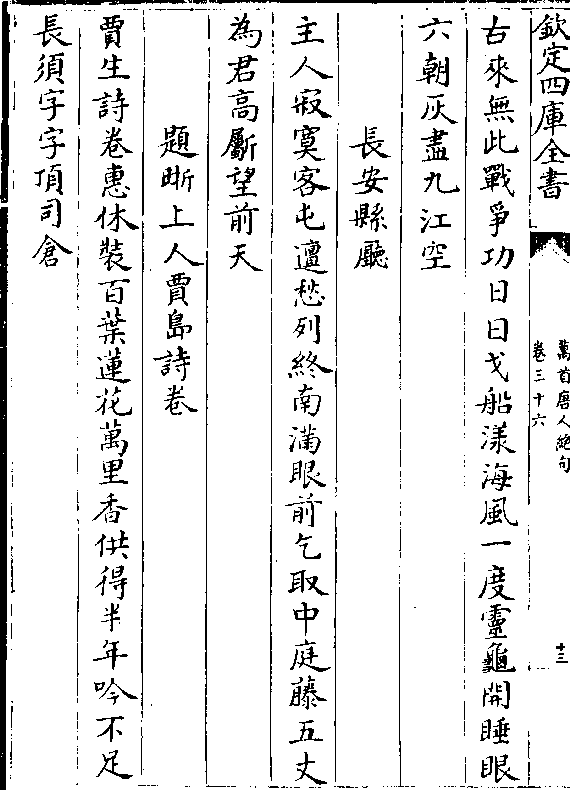 欽定四庫全書
萬首唐人絶句
卷三十六
十三
古來無此戰爭功日日戈船漾海風一度靈龜開睡眼
六朝灰盡九江空
長安縣廳
主人寂寞客屯邅愁列終南滿眼前乞取中庭藤五丈
為君高斸望前天
題晰上人賈島詩卷
賈生詩卷惠休裝百葉蓮花萬里香供得半年吟不足
長須字字頂司倉